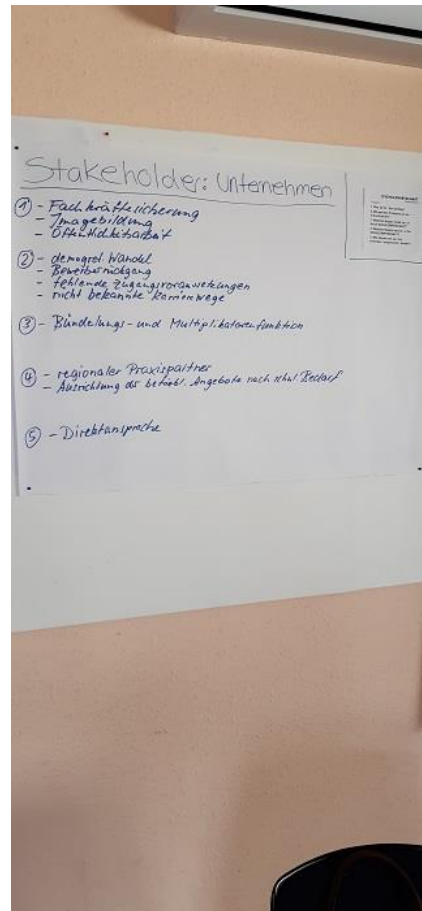 Stakeholder: Unternehmen
① - Fachkräftesicherung
- Imagebildung
- Öffentlichkeitsarbeit
② - demograf. Wandel
- Bewerberrückgang
- fehlende Zugangsvoraussetzungen
- nicht bekannte Karrierewege
③ - Bündelungs- und Multiplikatorenfunktion
④ - regionaler Praxispartner
- Ausrichtung der betriebl. Angebote nach schul. Bedarf
⑤ - Direktansprache